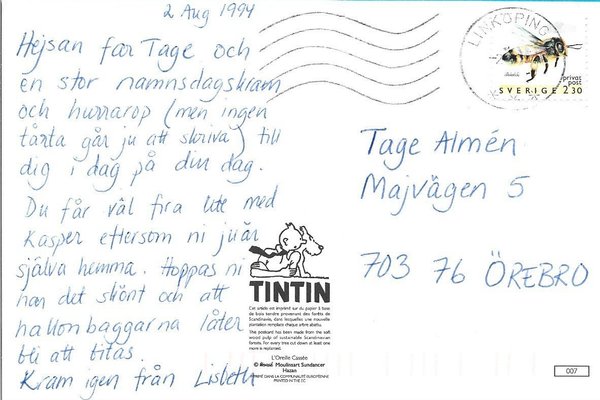 2 Aug 1994
Hejsan far Tage och
en stor namnsdagskram
och hurrarop (men ingen
tårta går ju att skriva) till
dig i dag på din dag.
Du får väl fira lite med
Kasper eftersom ni ju är
själva hemma. Hoppas ni
har det skönt och att
hallonbaggarna låter
bli att bitas.
Kram igen från Lisbeth
LINKÖPING
privat
post
SVERIGE 2.30
Tage Almén
Majvägen 5
703 76 ÖREBRO
TINTIN
Cet article est imprimé sur du papier à base
de bois tendre provenant des forêts de
Scandinavie, dans lesquelles une nouvelle
plantation remplace chaque arbre abattu.
This postcard has been made from the soft
wood pulp of sustainable Scandinavian
forests. For every tree cut down at least one
more is replanted.
L'Oreille Cassée
© Hergé Moulinsart Sundancer
Hazan
IMPRIMÉ DANS LA COMMUNAUTÉ EUROPÉENNE
PRINTED IN THE EC
007